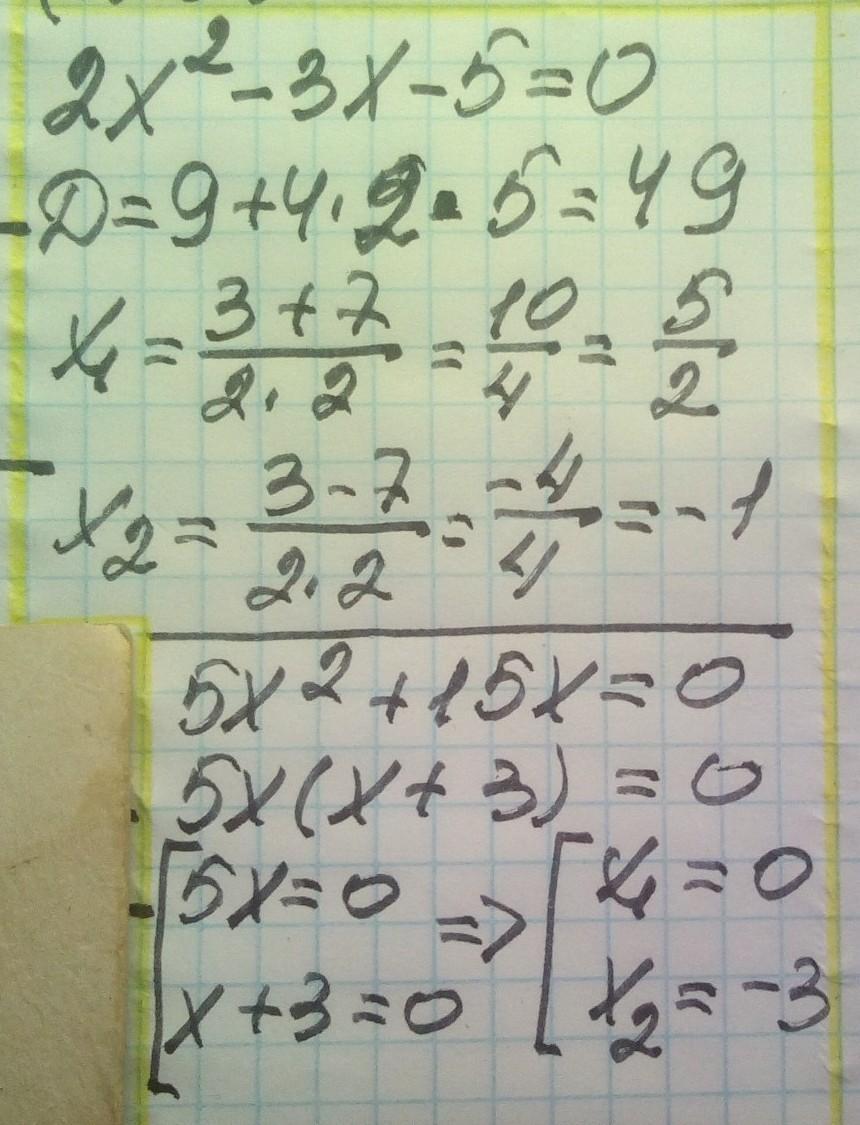 2x² - 3x - 5 = 0
D = 9 + 4 · 2 · 5 = 49
x₁ = (3 + 7)/(2 · 2) = 10/4 = 5/2
x₂ = (3 - 7)/(2 · 2) = -4/4 = -1
5x² + 15x = 0
5x(x + 3) = 0
[5x = 0 => [x₁ = 0
x + 3 = 0 x₂ = -3